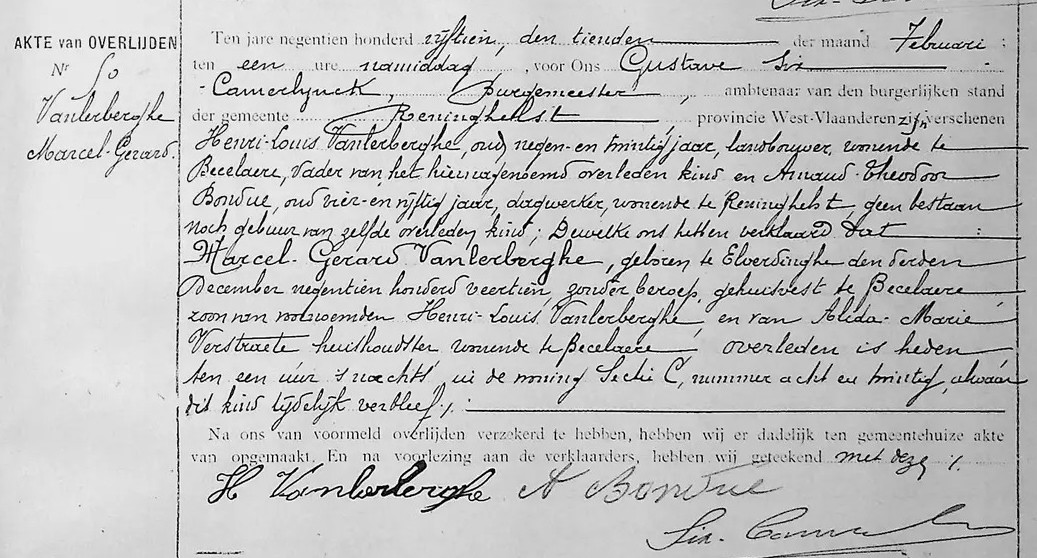 AKTE van OVERLIJDEN
Nr 50
Vanlerberghe
Marcel-Gerard.
Ten jare negentien honderd vijftien, den tienden der maand Februari ;
ten een ure namiddag , voor Ons Gustave Six
- Camerlynck, Burgemeester , ambtenaar van den burgerlijken stand
der gemeente Reninghelst provincie West-Vlaanderen zijn verschenen
Henri-Louis Vanlerberghe, oud negen-en-twintig jaar, landbouwer, wonende te
Becelaere, Vader van het hiernagenoemd overleden kind en Amand-Theodoor
Bondue, oud vier-en-vijftig jaar, dagwerker, wonende te Reninghelst, geen bestaan
noch gebuur van zelfde overleden kind ; Dewelke ons hebben verklaard dat
Marcel-Gerard Vanlerberghe, geboren te Elverdinghe den derden
December negentien honderd veertien, zonder beroep, gehuisvest te Becelaere
zoon van voornoemden Henri-Louis Vanlerberghe, en van Alida-Marie
Verstraete huishoudster wonende te Becelaere, overleden is heden
ten een uur 's nachts in de woning Sectie C, nummer acht en twintig, alwaar
dit kind tijdelijk verbleef ./.
Na ons van voormeld overlijden verzekerd te hebben, hebben wij er dadelijk ten gemeentehuize akte
van opgemaakt. En na voorlezing aan de verklaarders, hebben wij geteekend met dezen ./.
H Vanlerberghe A Bondue
Six-